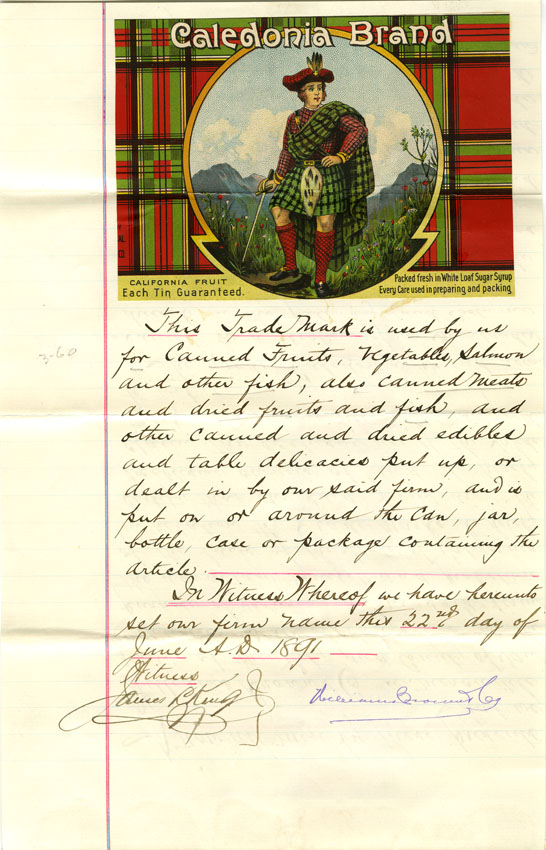 Caledonia Brand
AL
CALIFORNIA FRUIT
Each Tin Guaranteed.
Packed fresh in White Loaf Sugar Syrup
Every Care used in preparing and packing
This Trade Mark is used by us
for Canned Fruits, Vegetables, Salmon
and other fish, also canned meats
and dried fruits and fish, and
other canned and dried edibles
and table delicacies put up, or
dealt in by our said firm, and is
put on or around the can, jar,
bottle, case or package containing the
article.
In Witness Whereof we have hereunto
set our firm name this 22nd day of
June A.D. 1891
Witness
James L. King
Williams Brown & Co
3-60